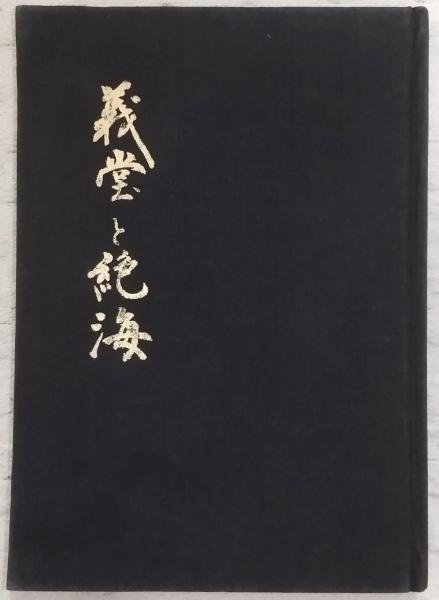 義堂と絶海